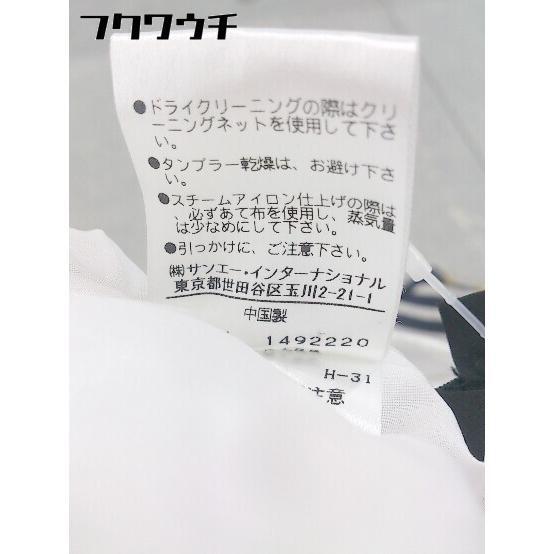 フクワウチ
●ドライクリーニングの際はクリ
ーニングネットを使用して下さ
い。
●タンブラー乾燥は、お避け下さ
い。
●スチームアイロン仕上げの際は
、必ずあて布を使用し、蒸気量
は少なめにして下さい。
●引っかけに、ご注意下さい。
㈱サンエー・インターナショナル
東京都世田谷区玉川2-21-1
中国製
1492220
H-31
注意